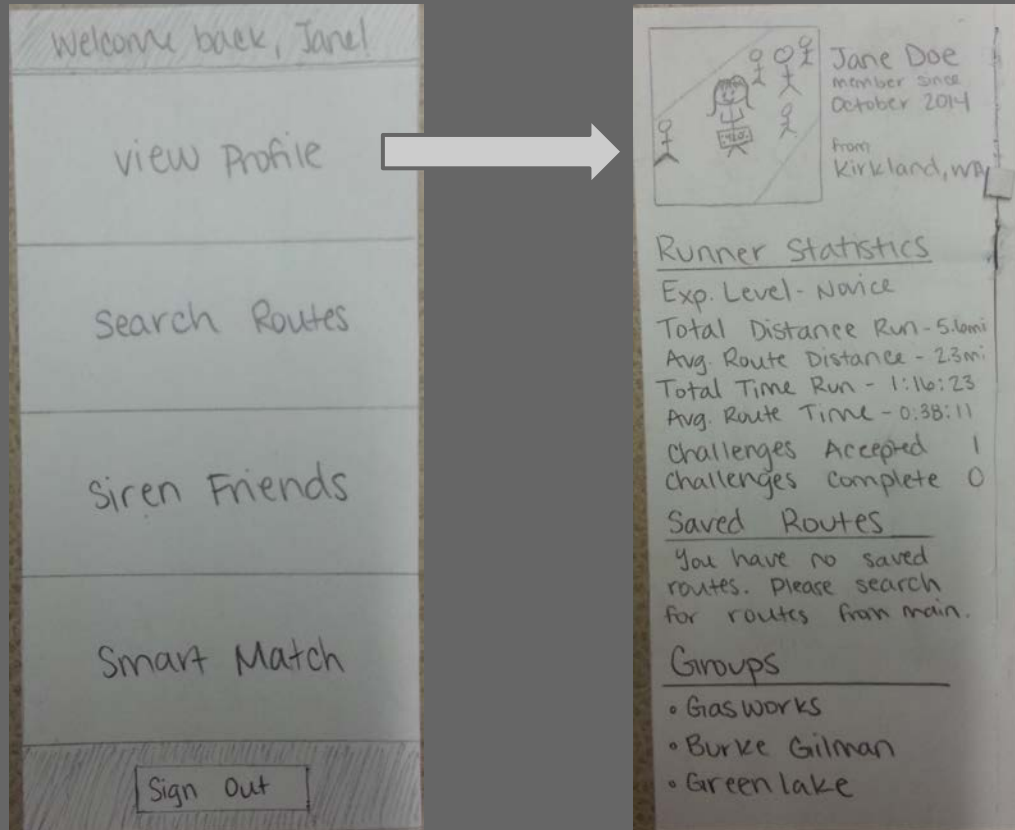 Welcome back, Jane!
View Profile
Search Routes
Siren Friends
Smart Match
Sign Out
Jane Doe
member since
October 2014
from
Kirkland, WA
Runner Statistics
Exp. Level - Novice
Total Distance Run - 5.6mi
Avg. Route Distance - 2.3mi
Total Time Run - 1:16:23
Avg. Route Time - 0:38:11
Challenges Accepted 1
Challenges Complete 0
Saved Routes
You have no saved
routes. Please search
for routes from main.
Groups
• Gasworks
• Burke Gilman
• Green lake